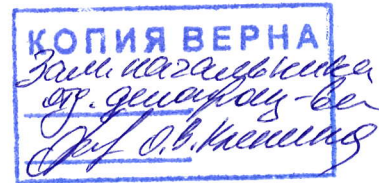 КОПИЯ ВЕРНА
Зам. начальника
отд. делопроиз-ва
О.В.